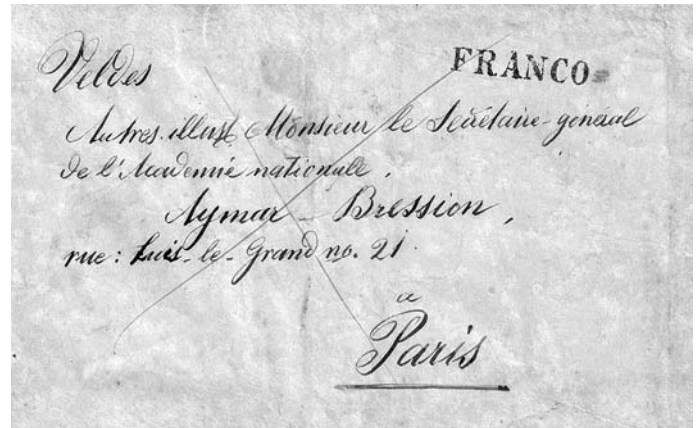 Veldes
FRANCO
Au tres. illust. Monsieur le Secrétaire-général
de l'Academie nationale,
Aymar - Bression,
rue: Luis-le-Grand no. 21.
a
Paris